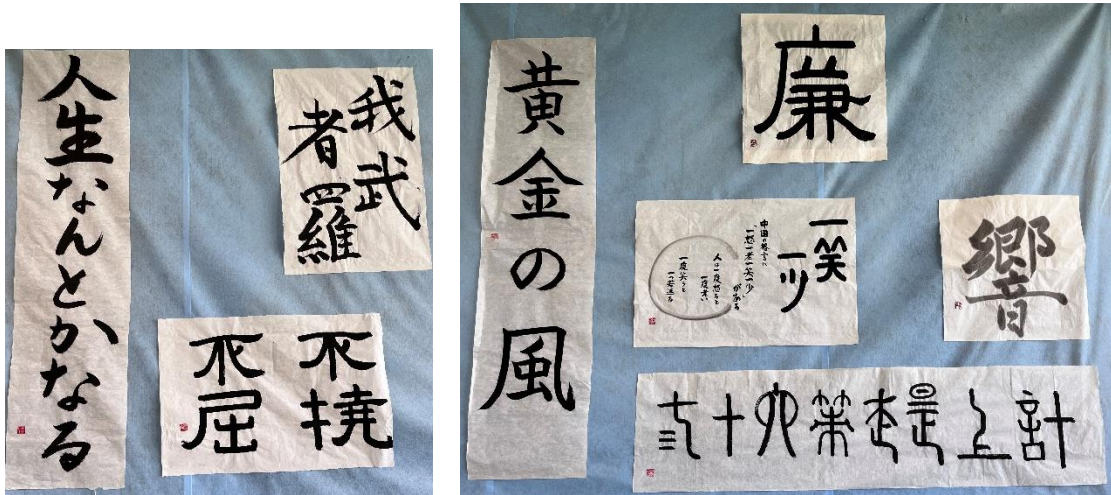 人生なんとかなる
我武
者羅
不撓
不屈
黄金の風
廉
一笑
一少
中国の格言に
一怒一老一笑一少
がある
人は一度怒ると
一度老い
一度笑うと
一度若返る
響
弎十六策走是上計